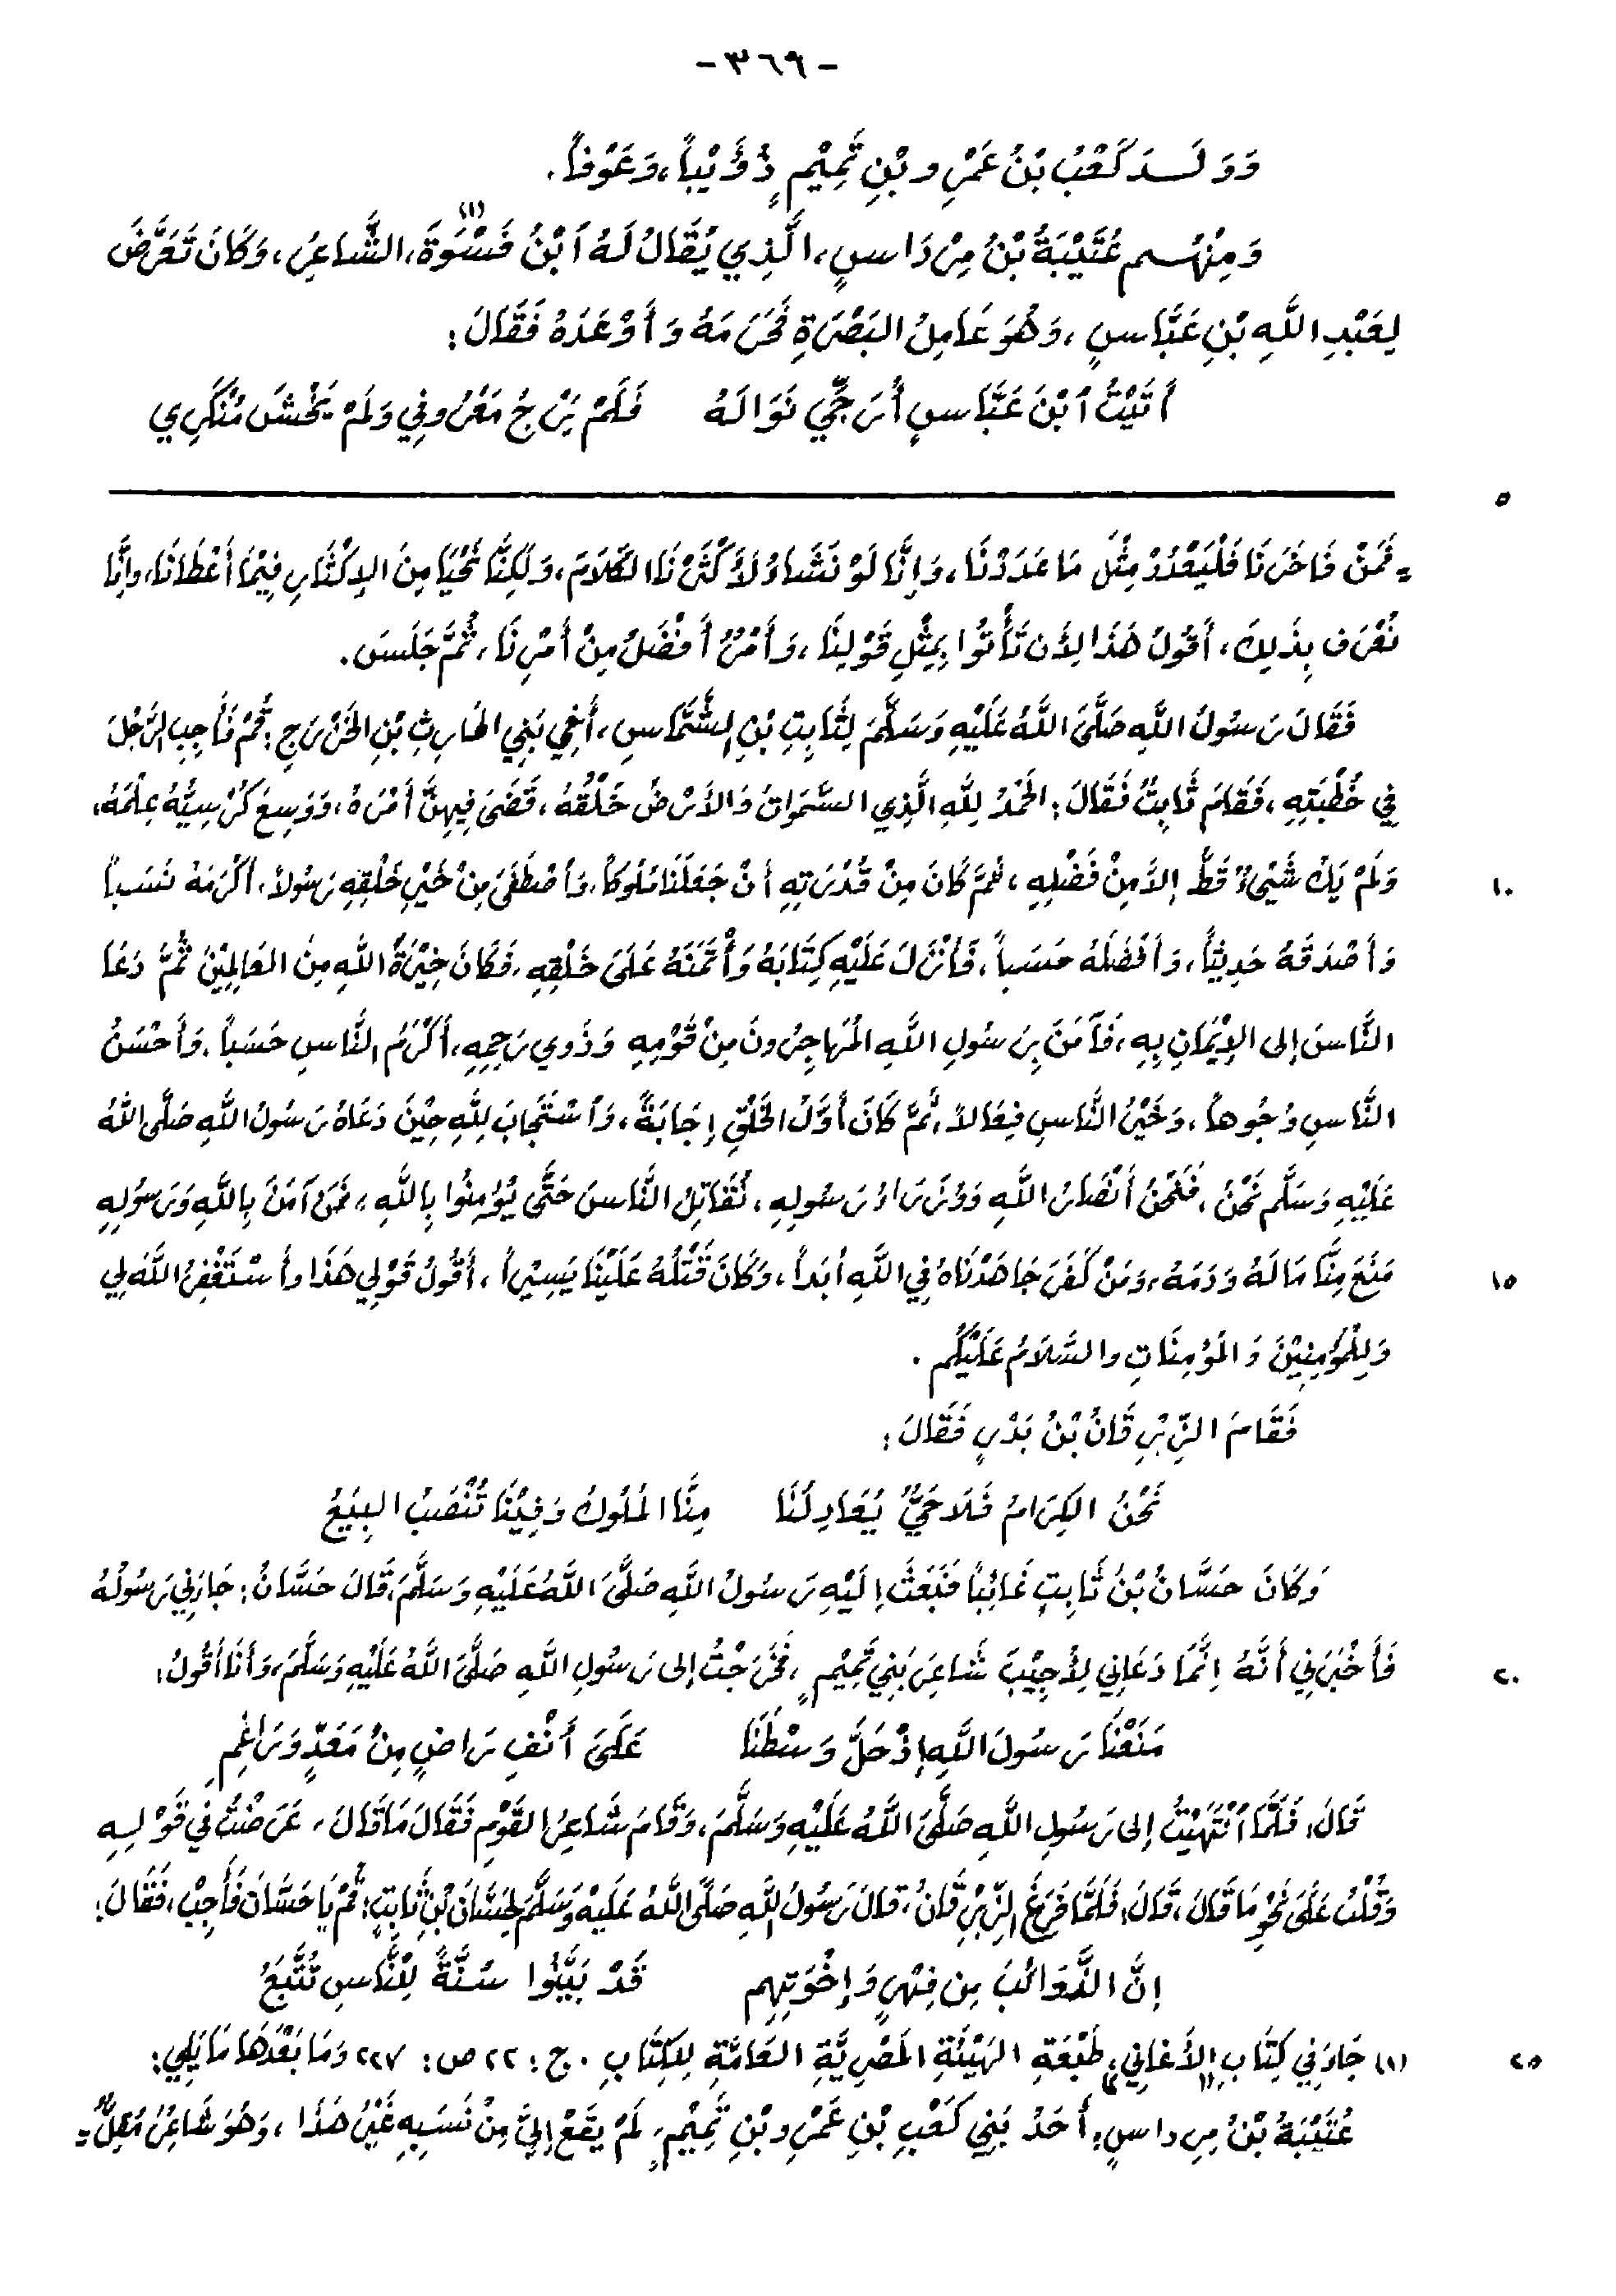 - ٣٦٩ -
وَوَلَـدَ كَعْبُ بْنُ عَمْرِو بْنِ تَمِيْمٍ ذُؤَيْباً، وَعَوْفاً.
وَمِنْهُـم عُتَيْبَةُ بْنُ مِرْدَاسٍ، الَّذِي يُقَالُ لَهُ ٱبْنُ فَسْوَةَ(١)، الشَّاعِرُ، وَكَانَ تَعَرَّضَ
لِعَبْدِ اللَّهِ بْنِ عَبَّاسٍ، وَهُوَ عَامِلُ البَصْرَةِ فَحَرَمَهُ وَأَوْعَدَهُ فَقَالَ:
أَتَيْتُ ٱبْنَ عَبَّاسٍ أُرَجِّي نَوَالَهُ فَلَمْ يَرْجُ مَعْرُوفِي وَلَمْ يَخْشَ مُنْكَرِي
٥
= فَمَنْ فَاخَرَنَا فَلْيَعْدُدْ مِثْلَ مَا عَدَدْنَا، وَإِنَّا لَوْ نَشَاءُ لَأَكْثَرْنَا الكَلَامَ، وَلَكِنَّا نَحْيَا مِنَ الإِكْثَارِ فِيْمَا أَعْطَانَا، وإِنَّا
نُعْرَف بِذَلِكَ، أَقُولُ هَذَا لِأَن تَأْتُوا بِمِثْلِ قَوْلِنَا، وَأَمْرٌ أَفْضَلُ مِنْ أَمْرِنَا، ثُمَّ جَلَسَ.
فَقَالَ رَسُولُ اللَّهِ صَلَّى اللَّهُ عَلَيْهِ وَسَلَّمَ لِثَابِتِ بْنِ الشَّمَّاسِ، أَخِي بَنِي الحَارِثِ بْنِ الخَزْرَجِ: قُمْ فَأَجِبِ الرَّجُلَ
فِي خُطْبَتِهِ، فَقَامَ ثَابِتٌ فَقَالَ: الحَمْدُ لِلَّهِ الَّذِي السَّمَوَاتُ وَالأَرْضُ خَلْقُهُ، قَضَى فِيهِنَّ أَمْرَهُ، وَوَسِعَ كُرْسِيُّهُ عِلْمَهُ،
١٠ وَلَمْ يَكُ شَيْءٌ قَطُّ إِلاَّ مِنْ فَضْلِهِ، ثُمَّ كَانَ مِنْ قُدْرَتِهِ أَنْ جَعَلَنَا مُلُوكاً، وَٱصْطَفَى مِنْ خَيْرِ خَلْقِهِ رَسُولاً، أَكْرَمَهُ نَسَباً
وَأَصْدَقَهُ حَدِيثاً، وَأَفْضَلَهُ حَسَباً، فَأَنْزَلَ عَلَيْهِ كِتَابَهُ وَأْتَمَنَهُ عَلَى خَلْقِهِ، فَكَانَ خِيْرَةَ اللَّهِ مِنَ العَالَمِيْنَ ثُمَّ دَعَا
النَّاسَ إِلى الإِيْمَانِ بِهِ، فَآمَنَ بِرَسُولِ اللَّهِ المُهَاجِرُونَ مِنْ قَوْمِهِ وَذَوِي رَحِمِهِ، أَكْرَمُ النَّاسِ حَسَباً، وَأَحْسَنُ
النَّاسِ وُجُوهاً، وَخَيْرُ النَّاسِ فِعَالاً، ثُمَّ كَانَ أَوَّلُ الخَلْقِ إِجَابَةً، وَٱسْتَجَابَ لِلَّهِ حِيْنَ دَعَاهُ رَسُولُ اللَّهِ صَلَّى اللَّهُ
عَلَيْهِ وَسَلَّم نَحْنُ، فَنَحْنُ أَنْصَارُ اللَّهِ وَوُزَرَاءُ رَسُولِهِ، نُقَاتِلُ النَّاسَ حَتَّى يُؤْمِنُوا بِاللَّهِ، فَمَنْ آمَنَ بِاللَّهِ وَرَسُولِهِ
١٥ مَنَعَ مِنَّا مَالَهُ وَدَمَهُ، وَمَنْ كَفَرَ جَاهَدْنَاهُ فِي اللَّهِ أَبَداً، وَكَانَ قَتْلُهُ عَلَيْنَا يَسِيْراً، أَقُولُ قَوْلِي هَذَا وأَسْتَغْفِرُ اللَّهَ لِي
وَلِلْمُؤْمِنِيْنَ وَالمُؤْمِنَاتِ والسَّلَامُ عَلَيْكُم.
فَقَامَ الزِّبْرِقَانُ بْنُ بَدْرٍ فَقَالَ:
نَحْنُ الكِرَامُ فَلَا حَيٌّ يُعَادِلُنَا مِنَّا المُلُوكُ وَفِيْنَا تُنْصَبُ البِيَعُ
وَكَانَ حَسَّانُ بْنُ ثَابِتٍ غَائِباً فَبَعَثَ إِلَيْهِ رَسُولُ اللَّهِ صَلَّى اللَّهُ عَلَيْهِ وَسَلَّمَ، قَالَ حَسَّانُ: جَاءَنِي رَسُولُهُ
٢٠ فَأَخْبَرَنِي أَنَّهُ إِنَّمَا دَعَانِي لِأُجِيْبَ شَاعِرَ بَنِي تَمِيْمٍ، فَخَرَجْتُ إِلى رَسُولِ اللَّهِ صَلَّى اللَّهُ عَلَيْهِ وَسَلَّمَ، وَأَنَا أَقُولُ:
مَنَعْنَا رَسُولَ اللَّهِ إِذْ حَلَّ وَسْطَنَا عَلَى أَنْفِ رَاضٍ مِنْ مَعَدٍّ وَرَاغِمِ
قَالَ: فَلَمَّا ٱنْتَهَيْتُ إِلى رَسُولِ اللَّهِ صَلَّى اللَّهُ عَلَيْهِ وَسَلَّمَ، وَقَامَ شَاعِرُ القَوْمِ فَقَالَ مَا قَالَ، عَرَضْتُ فِي قَوْلِـهِ
وَقُلْتُ عَلَى نَحْوِ مَا قَالَ، قَالَ: فَلَمَّا فَرَغَ الزِّبْرِقَانُ، قَالَ رَسُولُ اللَّهِ صَلَّى اللَّهُ عَلَيْهِ وَسَلَّمَ لِحَسَّانَ بْنِ ثَابِتٍ: قُمْ يَا حَسَّانَ فَأَجِبْ، فَقَالَ:
إِنَّ الذَّوَائِبَ مِن فِهْرٍ وَإِخْوَتِهِم قَدْ بَيَّنُوا سُنَّةً لِلْنَّاسِ تُتَّبَعُ
٢٥ (١) جَاءَ فِي كِتَابِ "الأَغَانِي" طَبْعَةِ الهَيْئَةِ المَصْرِيَّةِ العَامَّةِ لِلكِتَابِ. ج: ٢٢ ص: ٢٢٧ وَمَا بَعْدَهَا مَا يَلِي:
عُتَيْبَةُ بْنُ مِرداسٍ، أَحَدُ بَنِي كَعْبِ بْنِ عَمْرِو بْنِ تَمِيْمٍ، لَمْ يَقَعْ إِلَيَّ مِنْ نَسَبِهِ غَيْرُ هَذَا، وَهُوَ شَاعِرٌ مُقِلٌّ =